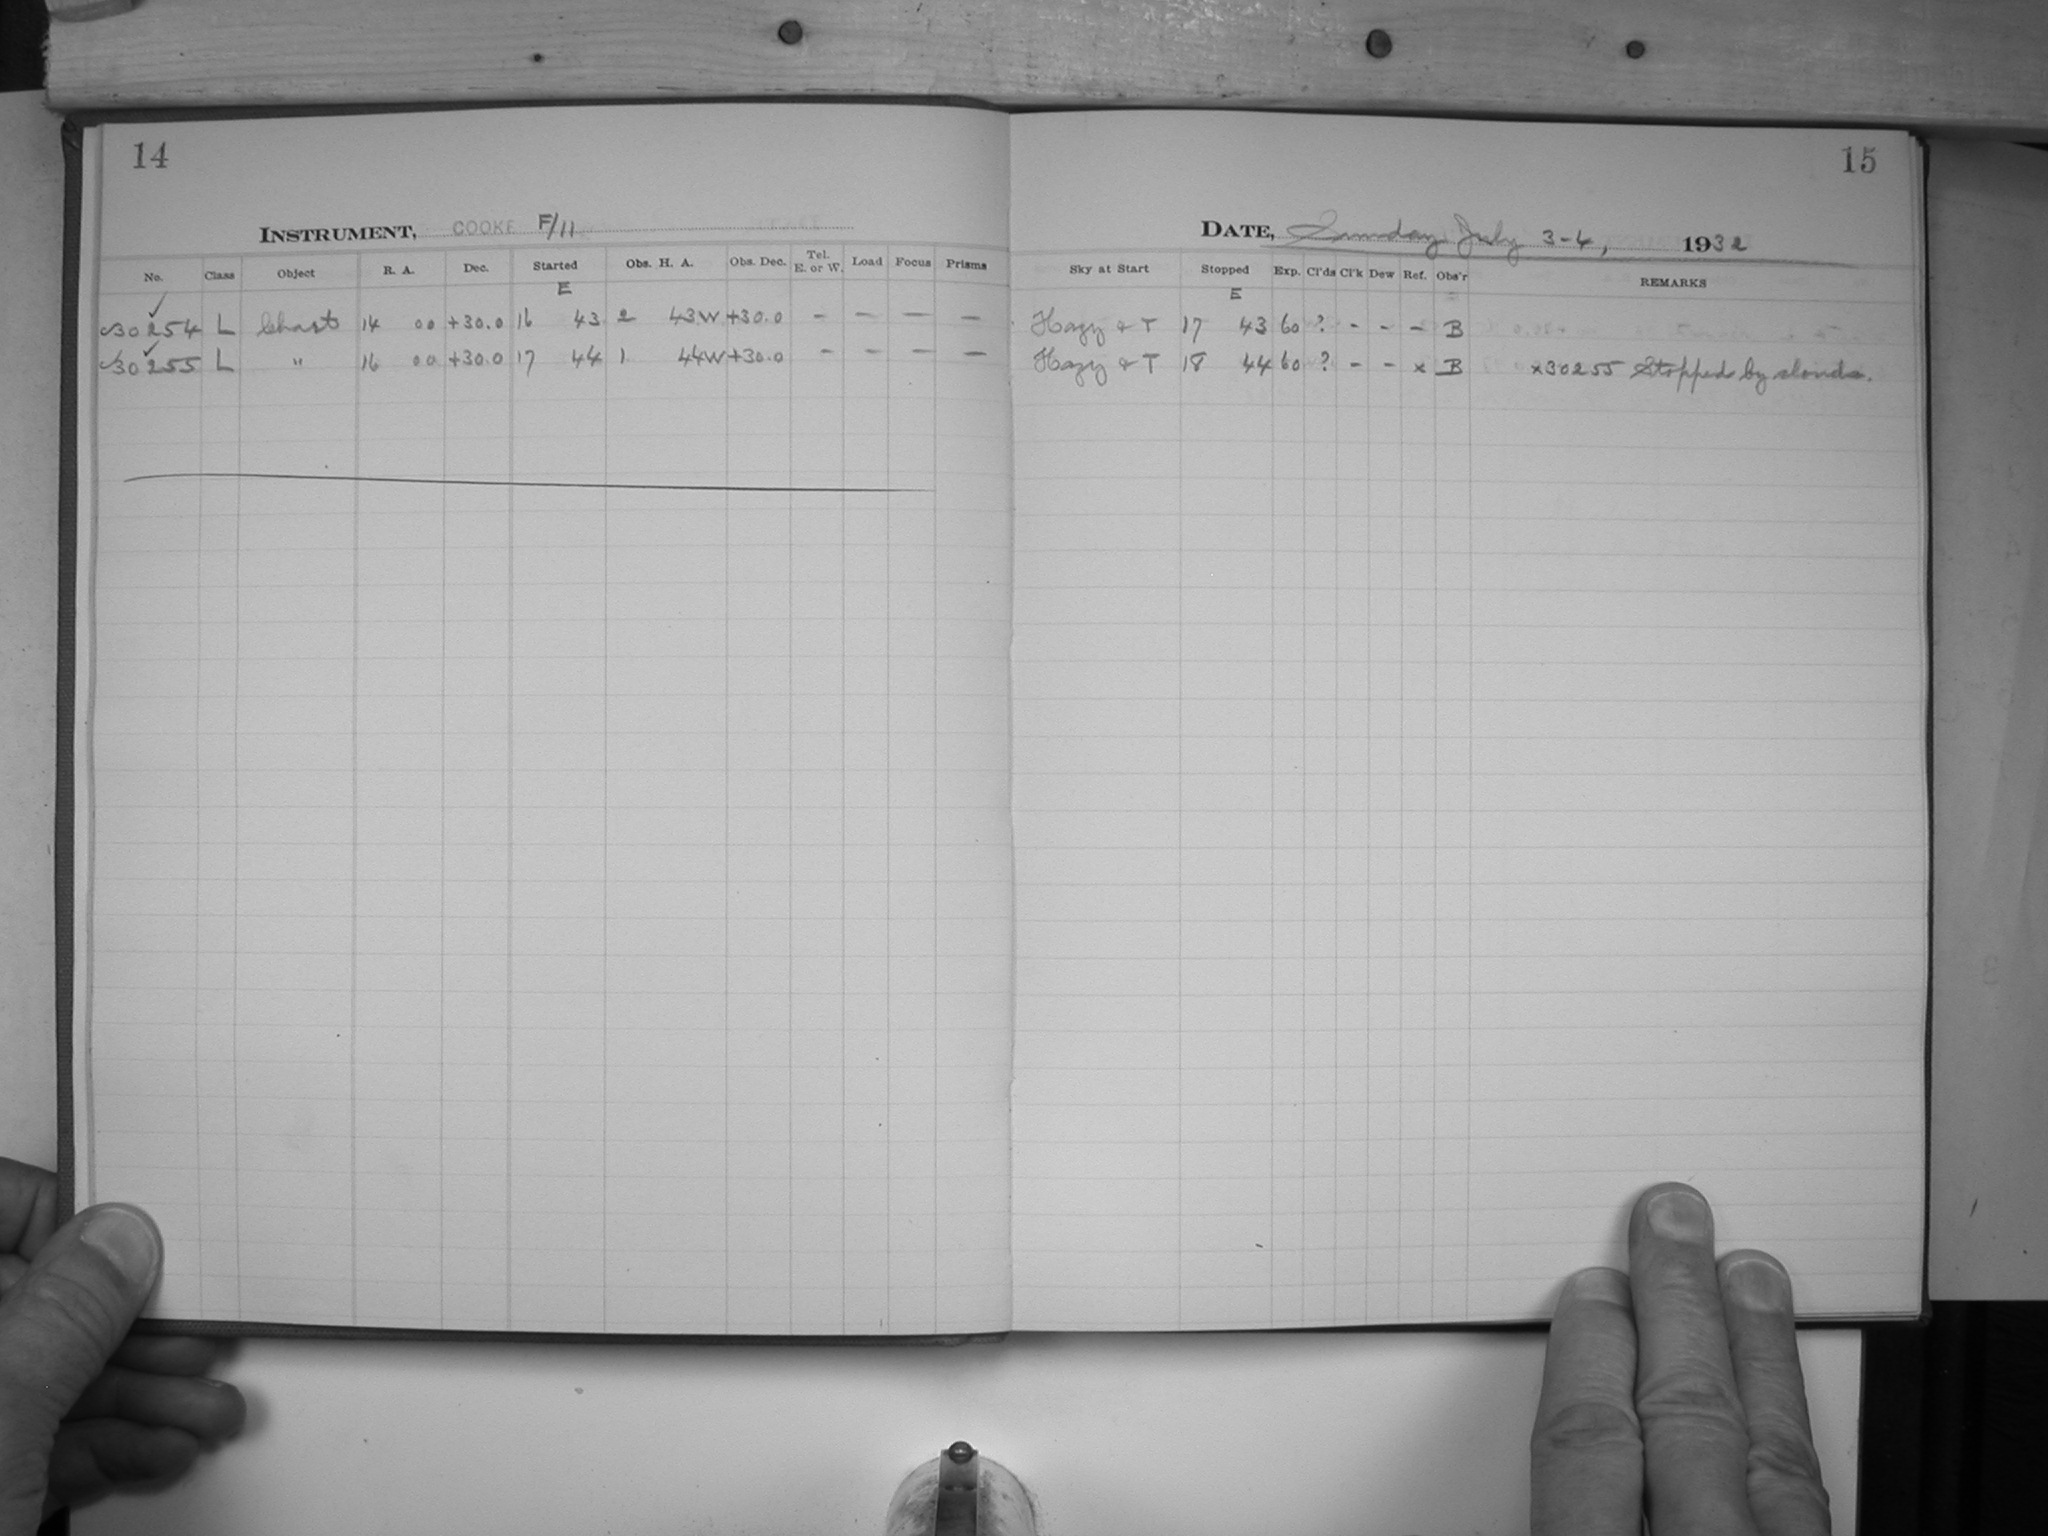 14
INSTRUMENT, COOKE F/11
No. Class Object R. A. Dec. Started Obs. H. A. Obs. Dec. Tel. E. or W. Load Focus Prisms
E
✓
30254 L Chart 14 00 +30.0 16 43 2 43W +30.0 - - - -
✓
30255 L " 16 00 +30.0 17 44 1 44W +30.0 - - - -
15
DATE, Sunday July 3-4, 1932
Sky at Start Stopped Exp. Cl'ds Cl'k Dew Ref. Obs'r REMARKS
E
Hazy & T 17 43 60 ? - - - B
Hazy & T 18 44 60 ? - - x B x30255 Stopped by clouds.